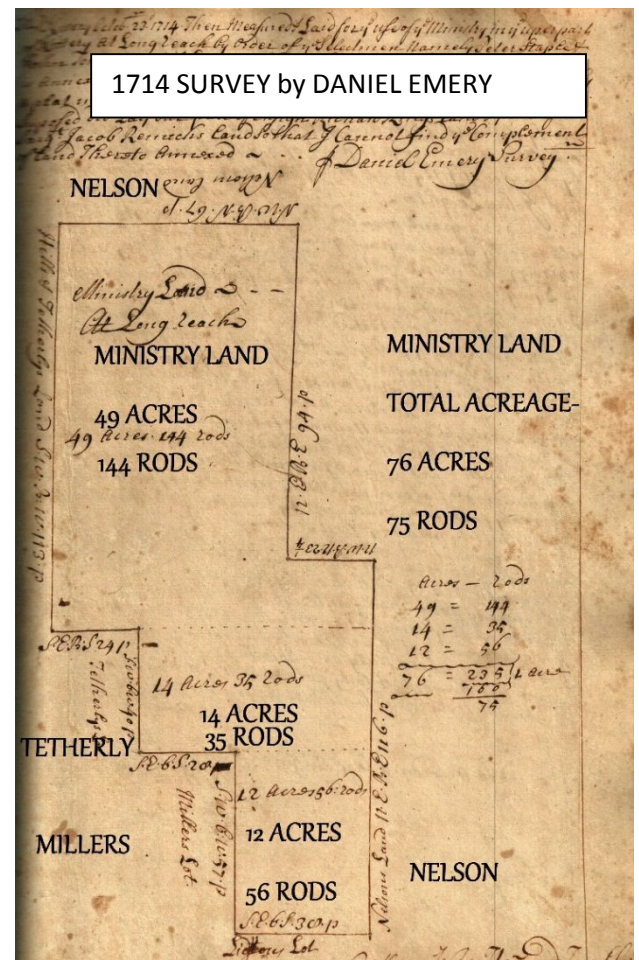 22 1714 Then Measured Land for ye use of ye Ministry in ye upper part
at Long reach by Order of ye Selectmen Namely Peter Staple
1714 SURVEY by DANIEL EMERY
Jacob Remichs Land so that I Cannot find ye Complement
of Land Thereto Annexed
Daniel Emery Survey
NELSON
Nelsons Land
Ministry Land
At Long reach
MINISTRY LAND
49 ACRES
49 Acres 144 rods
144 RODS
MINISTRY LAND
TOTAL ACREAGE-
76 ACRES
75 RODS
N. E. B. E 94. p
Acres - Rods
49 = 144
14 = 35
12 = 56
76 = 235 1 acre
160
75
S. E. B. S 24 p
Tetherlys
14 Acres 35 Rods
14 ACRES
35 RODS
TETHERLY
S. E. b. S. 20 p
Millers Lot
12 Acres 56 rods
12 ACRES
MILLERS
56 RODS
NELSON
Nelsons Land N. E. B. E 116. p
S. E. b. S. 30. p
Lot